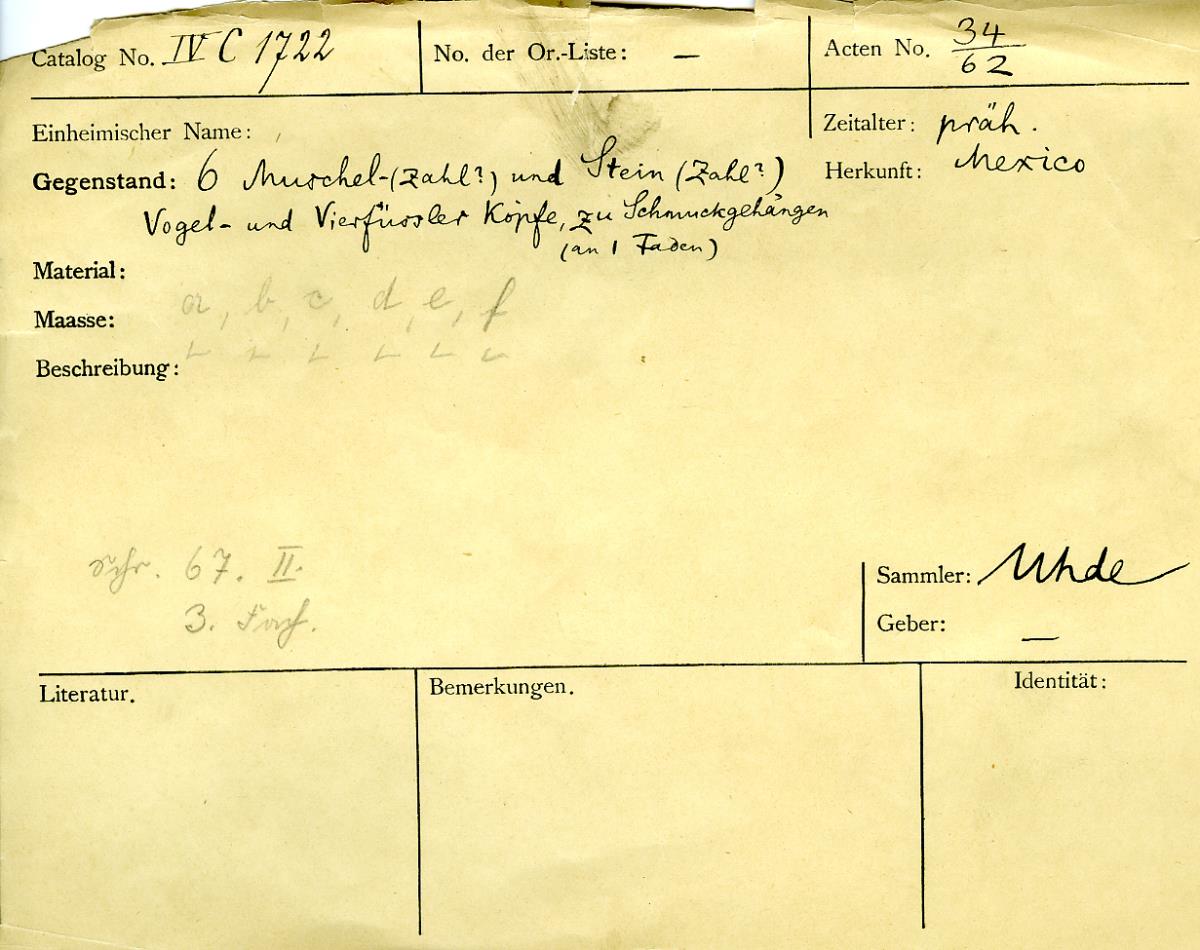 Catalog No. IV C 1722
No. der Or.-Liste: —
Acten No. 34/62
Einheimischer Name:
Zeitalter: präh.
Gegenstand: 6 Muschel-(Zahl?) und Stein (Zahl?)
Herkunft: Mexico
Vogel- und Vierfüssler Köpfe, zu Schmuckgehängen
(an 1 Faden)
Material:
a, b, c, d, e, f
Maasse:
Beschreibung:
Schr. 67. II.
3. Fach.
Sammler: Uhde
Geber: —
Literatur.
Bemerkungen.
Identität: